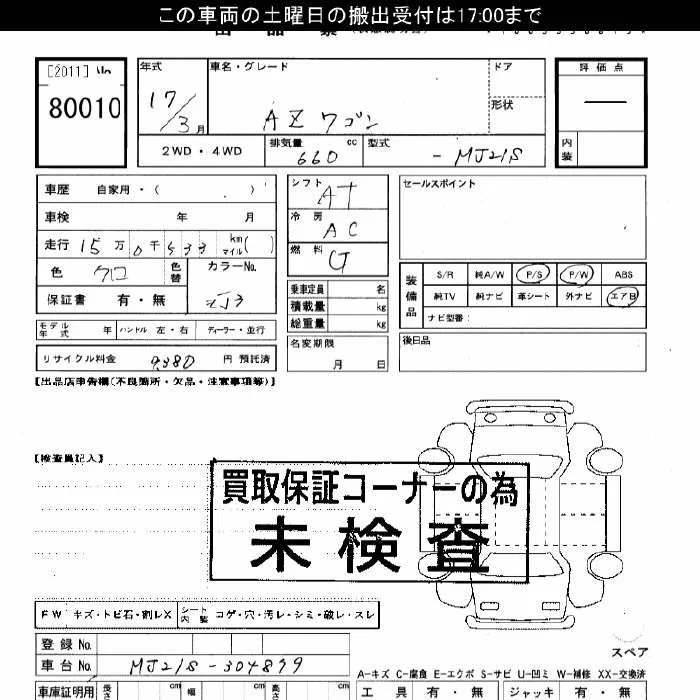 この車両の土曜日の搬出受付は17:00まで
[2011] No
80010
年式
17/3月
車名・グレード
AZワゴン
ドア
形状
評価点
—
内装
2WD・4WD
排気量 660 cc
型式 -MJ21S
車歴 自家用・( )
車検 年 月
走行 15万0千533 km マイル( )
色 クロ 色替
カラーNo. ZJ3
保証書 有・無
シフト AT
冷房 AC
燃料 G
乗車定員 名
積載量 kg
総重量 kg
セールスポイント
装備品
S/R 純A/W P/S P/W ABS
純TV 純ナビ 革シート 外ナビ エアB
ナビ型番:
モデル年式 年 ハンドル 左・右 ディーラー・並行
名変期限
月 日
後日品
リサイクル料金 9,380 円 預託済
【出品店申告欄(不良箇所・欠品・注意事項等)】
【検査員記入】
買取保証コーナーの為
未検査
FW キズ・トビ石・割レX
シート内装 コゲ・穴・汚レ・シミ・破レ・スレ
登録No.
車台No. MJ21S-304899
スペア
A-キズ C-腐食 E-エクボ S-サビ U-凹ミ W-補修 XX-交換済
車庫証明用 長さ cm 幅 cm 高さ cm
工具 有・無 ジャッキ 有・無